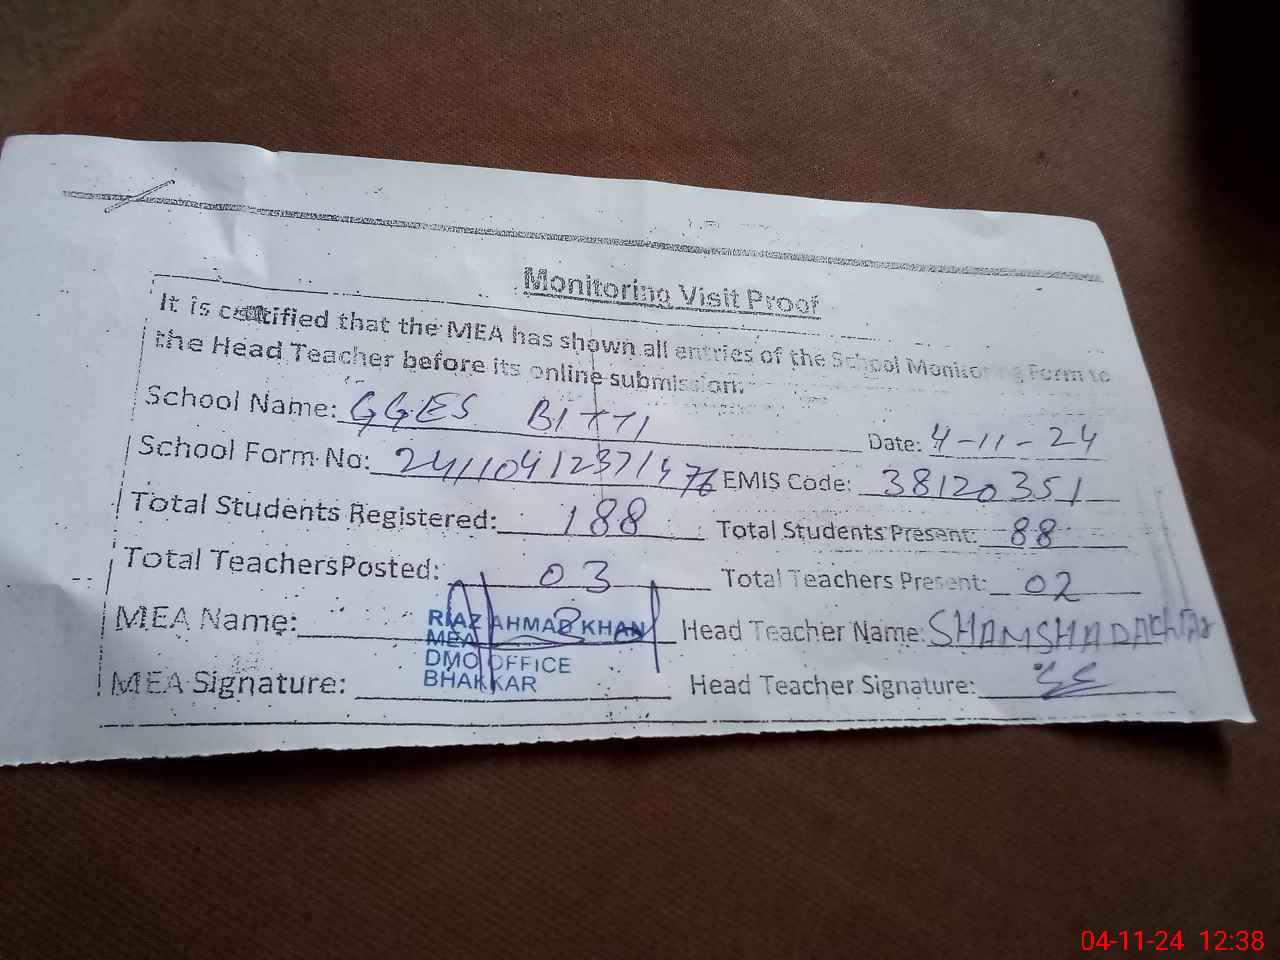 Monitoring Visit Proof
It is certified that the MEA has shown all entries of the School Monitoring Form to
the Head Teacher before its online submission.
School Name: GGES BITTI Date: 4-11-24
School Form No: 241104123714 76 EMIS Code: 38120351
Total Students Registered: 188 Total Students Present: 88
Total TeachersPosted: 03 Total Teachers Present: 02
MEA Name: RIAZ AHMAD KHAN Head Teacher Name: SHAMSHAD AKhtAR
MEA
DMO OFFICE
MEA Signature: BHAKKAR Head Teacher Signature:
04-11-24 12:38